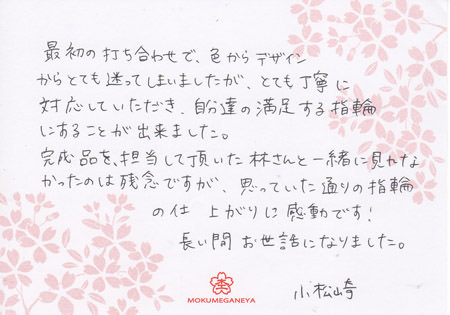 最初の打ち合わせで、色からデザイン
からとても迷ってしまいましたが、とても丁寧に
対応していただき、自分達の満足する指輪
にすることが出来ました。
完成品を、担当して頂いた林さんと一緒に見れな
かったのは残念ですが、思っていた通りの指輪
の仕上がりに感動です!
長い間お世話になりました。
小松崎
MOKUMEGANEYA